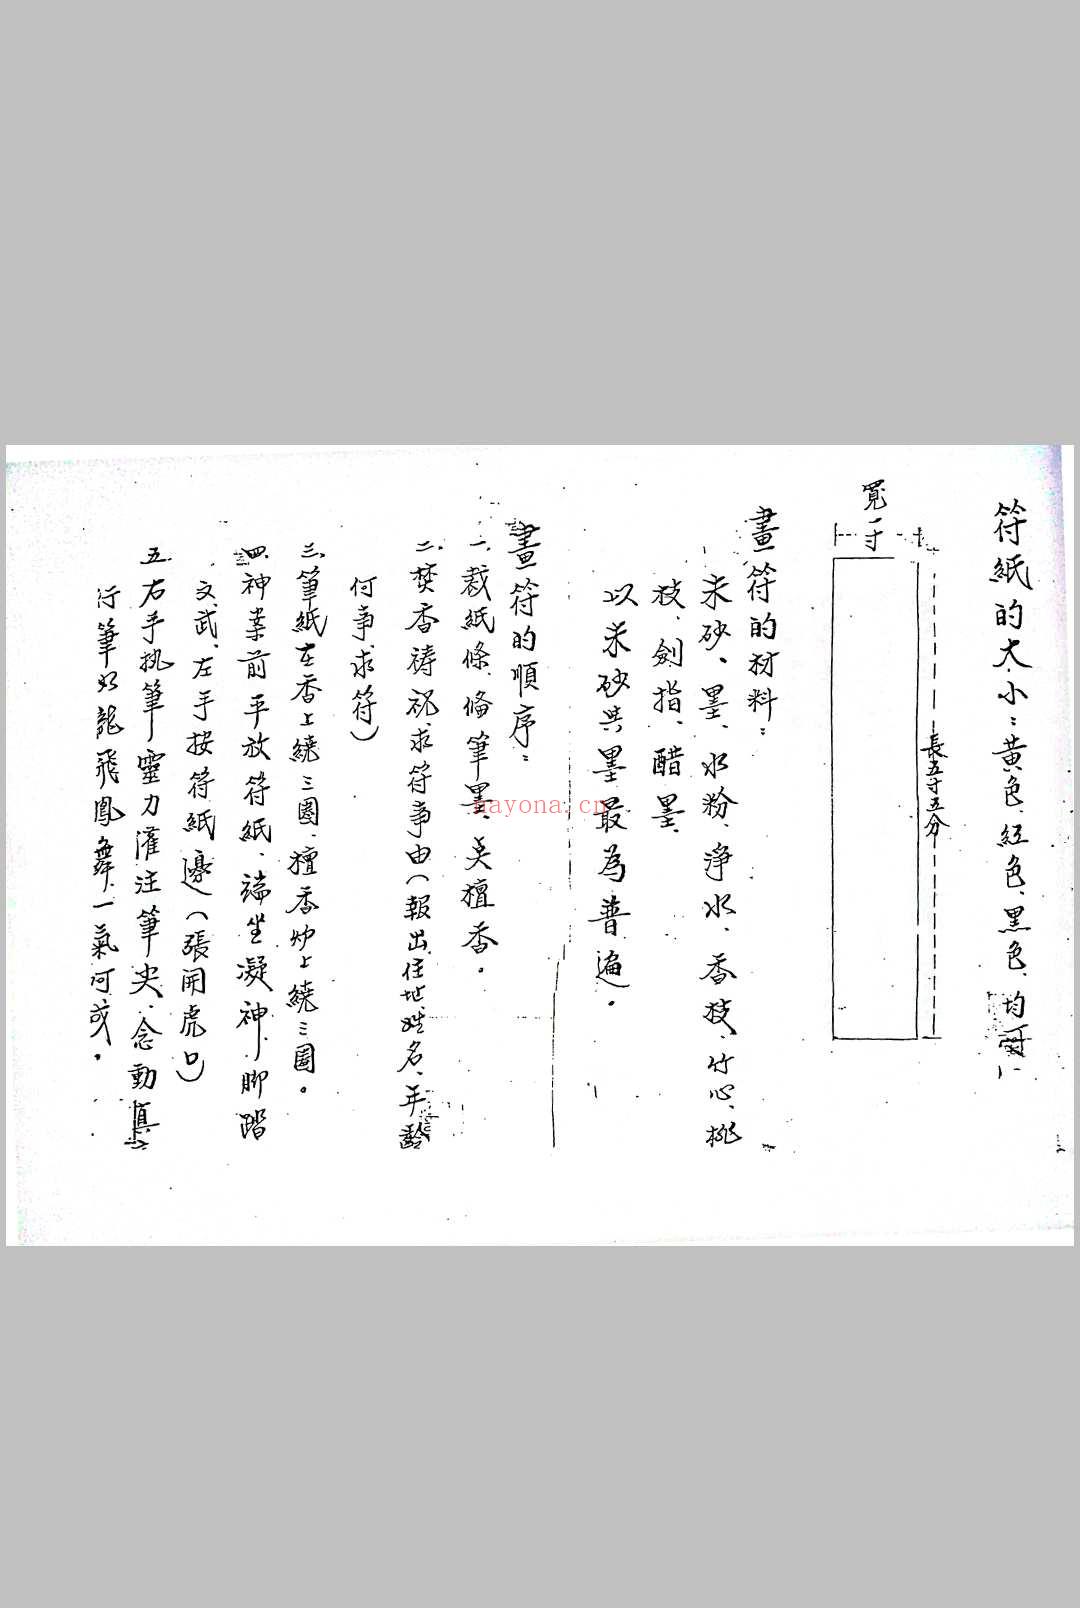 符紙的大小：黃色、紅色、黑色、均可
寬一寸
長五寸五分
畫符的材料：
朱砂、墨、水粉、淨水、香枝、竹心、桃
枝、劍指、醋墨、
以朱砂共墨最為普遍。
畫符的順序：
一、裁紙條、備筆墨、奠檀香。
二、焚香禱祝、求符事由（報出住地、姓名、年齡
何事、求符）
三、筆紙在香上繞三圈、檀香炉上繞三圈。
四、神案前平放符紙、端坐凝神、脚踏
文武、左手按符紙邊（張開虎口）
五、右手执筆靈力灌注筆尖、念動真
行筆如龍飛鳳舞、一氣呵成。
nayona.cn